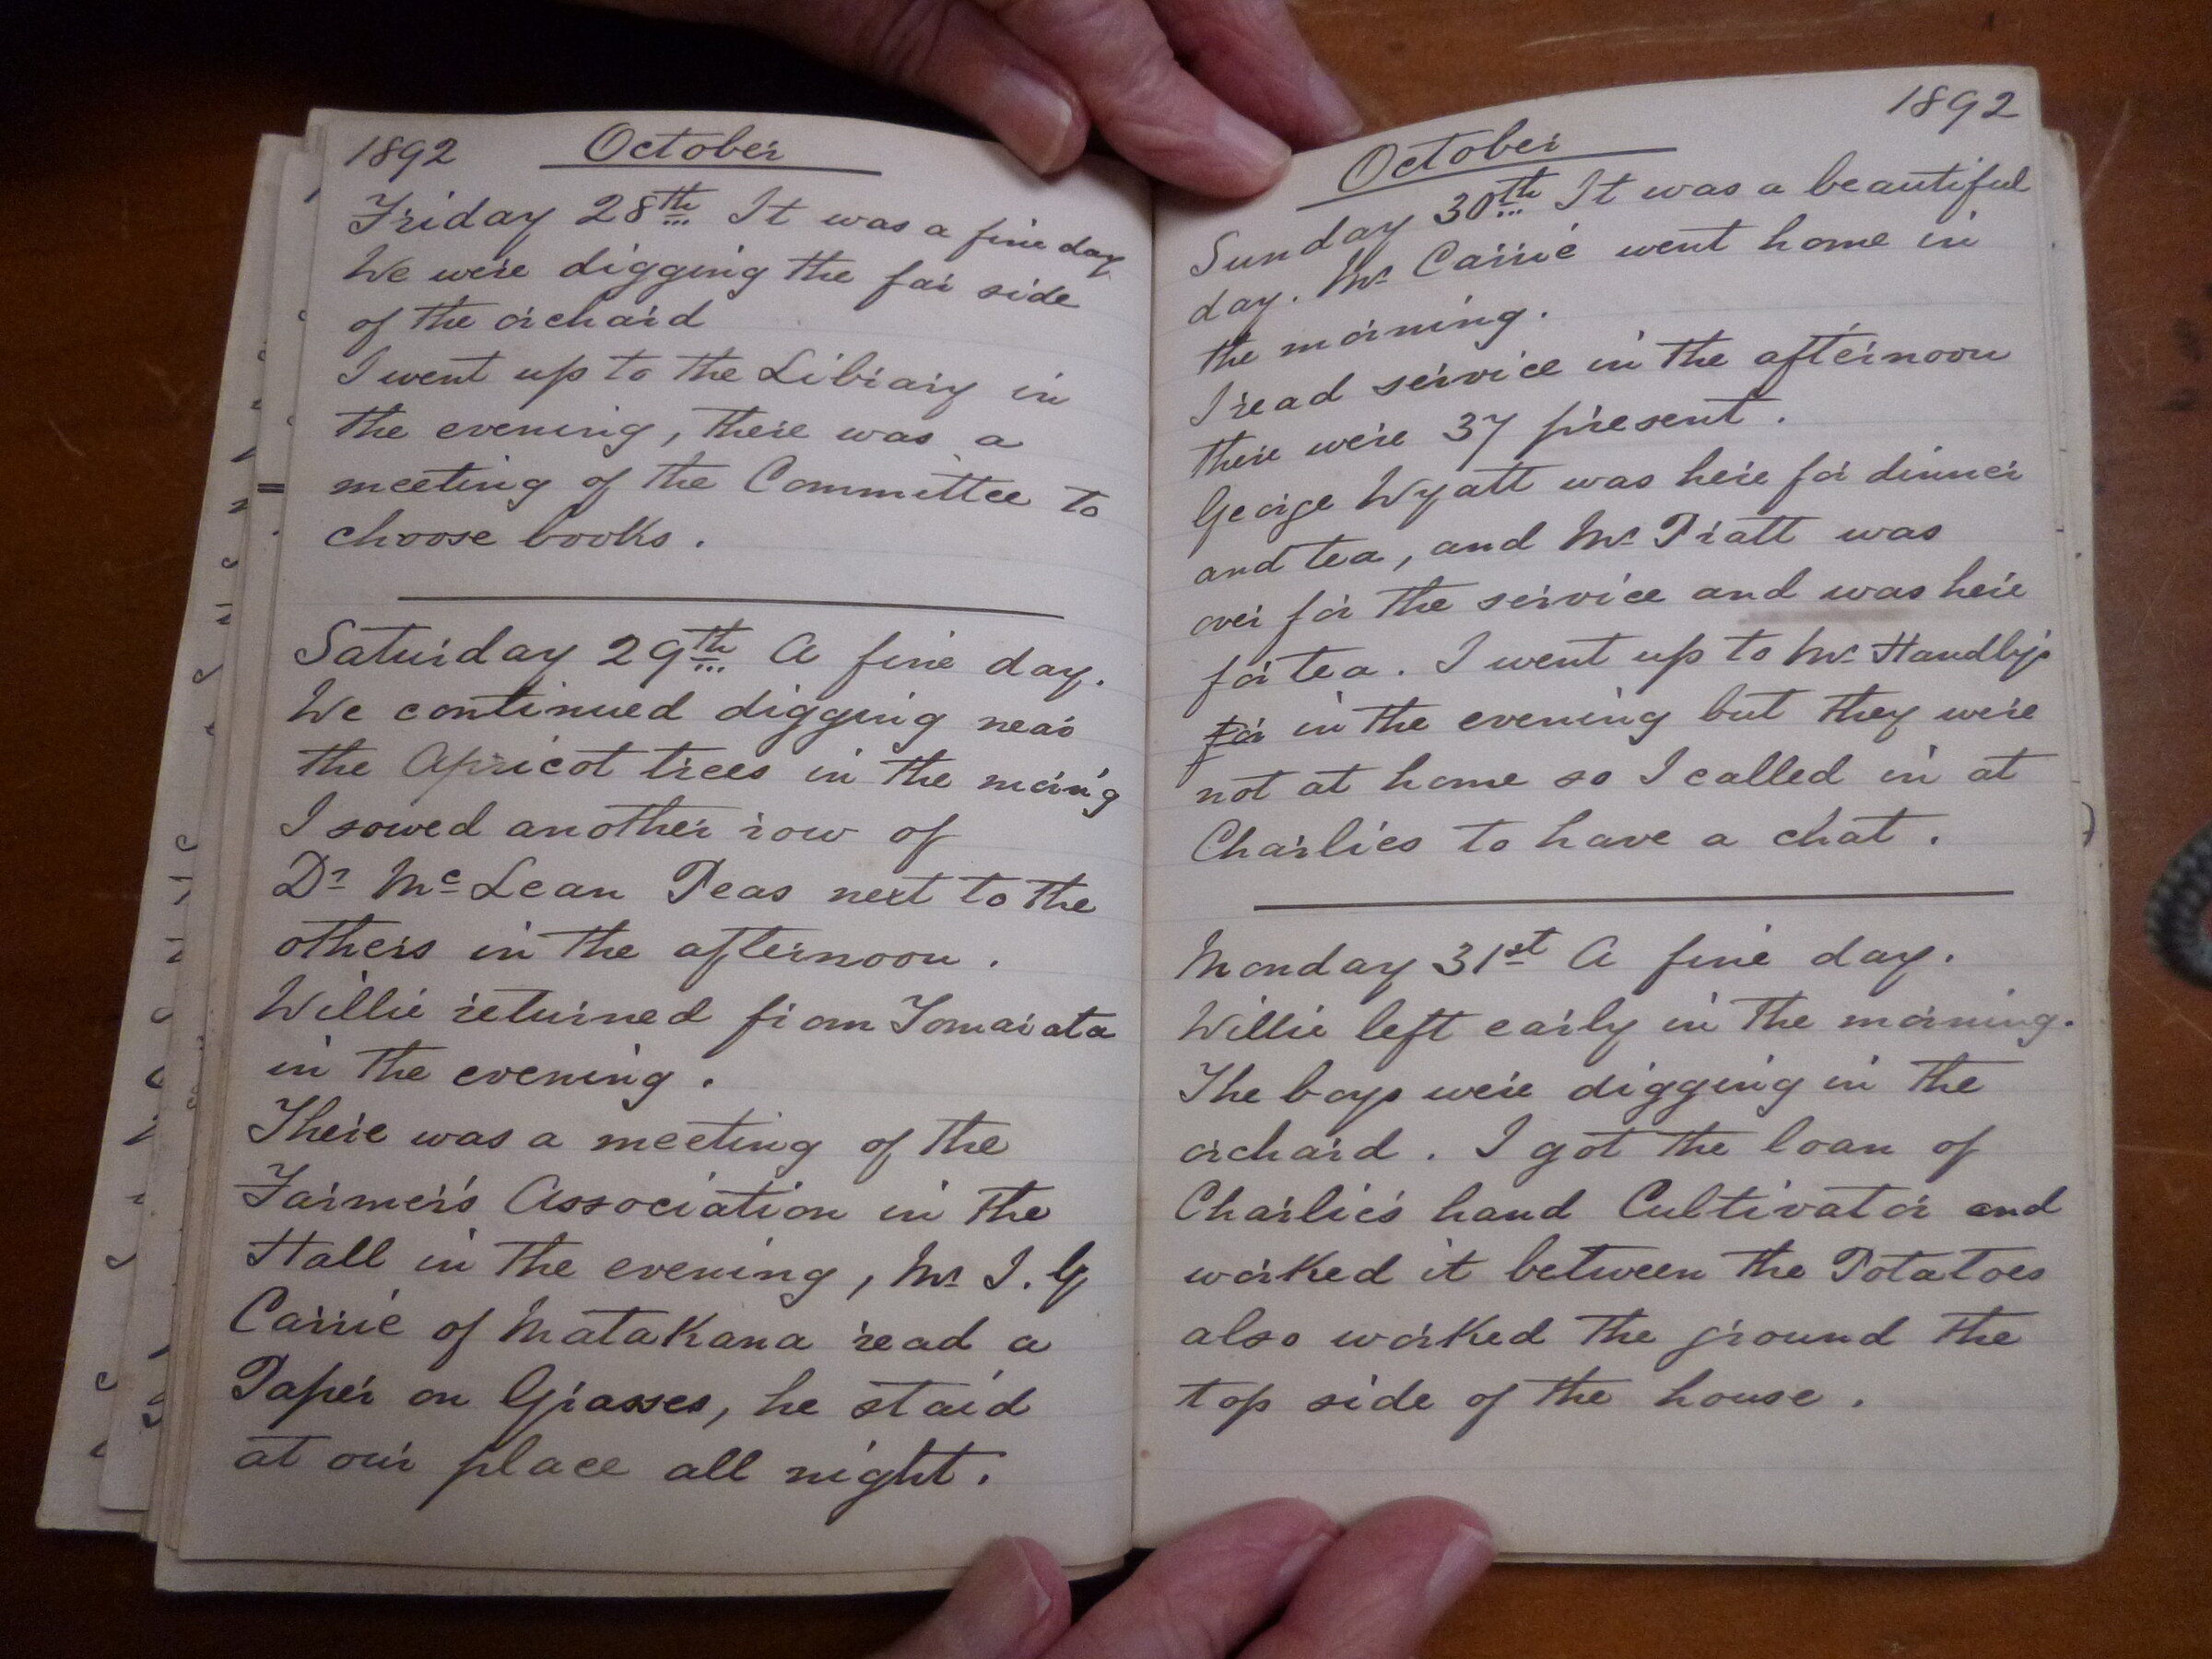 1892 October
Friday 28th It was a fine day
We were digging the far side
of the orchard
I went up to the Library in
the evening, there was a
meeting of the Committee to
choose books.
Saturday 29th A fine day.
We continued digging near
the Apricot trees in the morn'g
I sowed another row of
Dr McLean Peas next to the
others in the afternoon.
Willie returned from Tomarata
in the evening.
There was a meeting of the
Farmer's Association in the
Hall in the evening, Mr J. G
Carrie of Matakana read a
Paper on Grasses, he staid
at our place all night.
October 1892
Sunday 30th It was a beautiful
day. Mr Carrie went home in
the morning.
I read service in the afternoon
there were 37 present.
George Wyatt was here for dinner
and tea, and Mr Pratt was
over for the service and was here
for tea. I went up to Mr Handby's
for in the evening but they were
not at home so I called in at
Charlies to have a chat.
Monday 31st A fine day.
Willie left early in the morning.
The boys were digging in the
orchard. I got the loan of
Charlie's hand Cultivator and
worked it between the Potatoes
also worked the ground the
top side of the house.